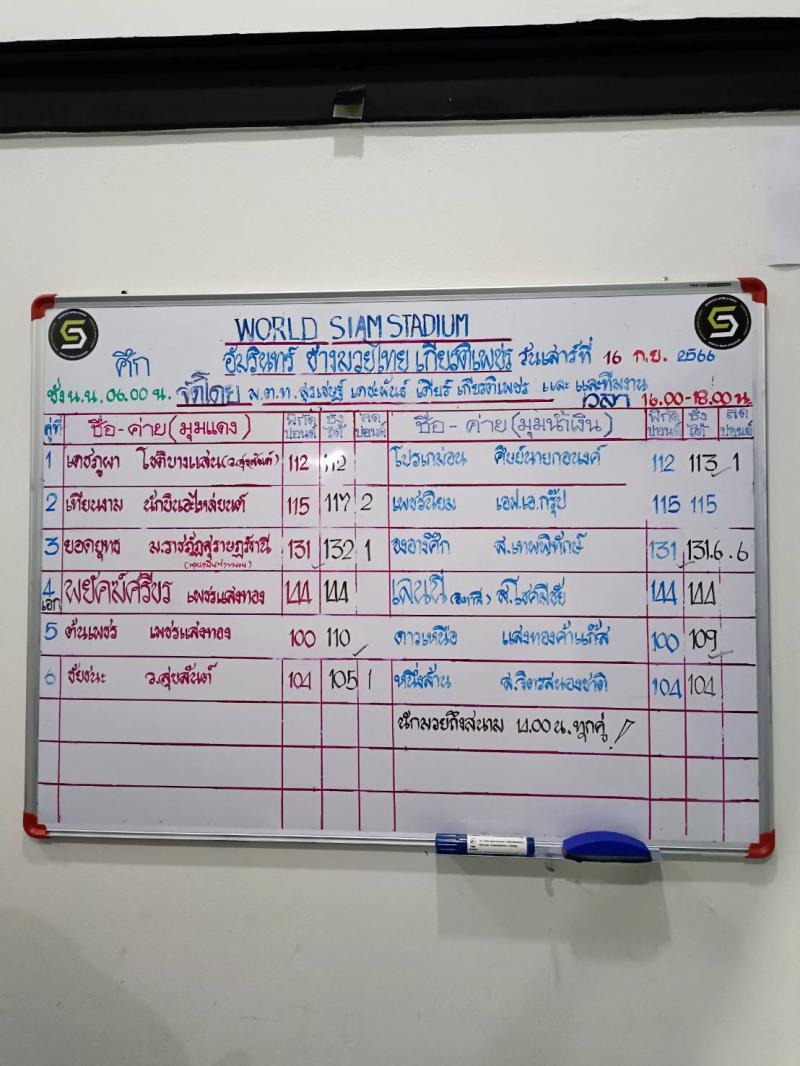 WORLD SIAM STADIUM
ศึก อัมรินทร์ ช้างมวยไทย เกียรติเพชร วันเสาร์ที่ 16 ก.ย. 2566
ชั่ง น.น. 06.00 น. จัดโดย พ.ต.ท. สุรเชษฐ์ เดชะพันธ์ เสี่ยร์ เกียรติเพชร และ และทีมงาน เวลา 16.00-18.00 น.
คู่ที่ ชื่อ-ค่าย (มุมแดง) พิกัดปอนด์ ชั่งได้ ลดปอนด์ ชื่อ - ค่าย (มุมน้ำเงิน) พิกัดปอนด์ ชั่งได้ ลดปอนด์
1 เดชภูผา โชติบางแสน 112 112 ศิษย์นายกอนงค์ 112 113 1
2 เทียนงาม นักบินอะไหล่ยนต์ 115 117 2 เพชรนิยม เอฟ.เอ.กรุ๊ป 115 115
3 ยอดยุทธ ม.ราชภัฏสุราษฎร์ธานี 131 132 1 ส.เทพพิทักษ์ 131 131.6 .6
4 เอก พยัคฆ์ศรีขร เพชรแสงทอง 144 144 144 144
5 ต้นเพชร เพชรแสงทอง 100 110 ดาวเหนือ แสงทองค้าแก๊ส 100 109
6 ชัยชนะ ว.สุขสันต์ 104 105 1 หนึ่งล้าน ส.จิตรสนองชาติ 104 104
นักมวยถึงสนาม 14.00 น. ทุกคู่ !